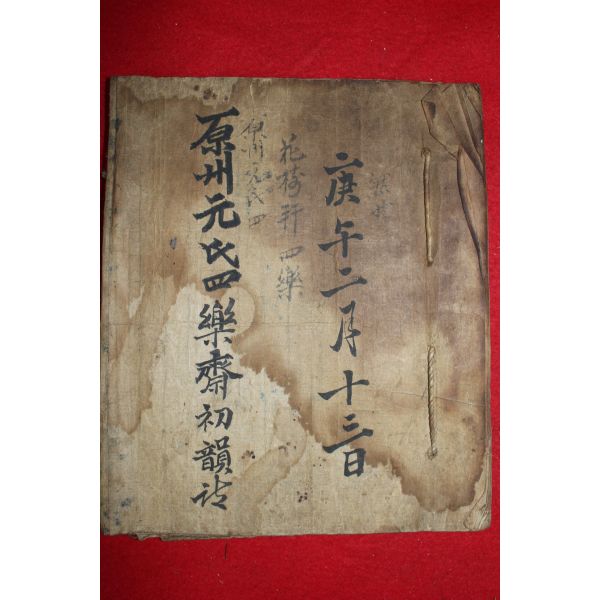 庚午二月十三日
花樹軒四樂
原州元氏四
原州元氏四樂齋初韻詩